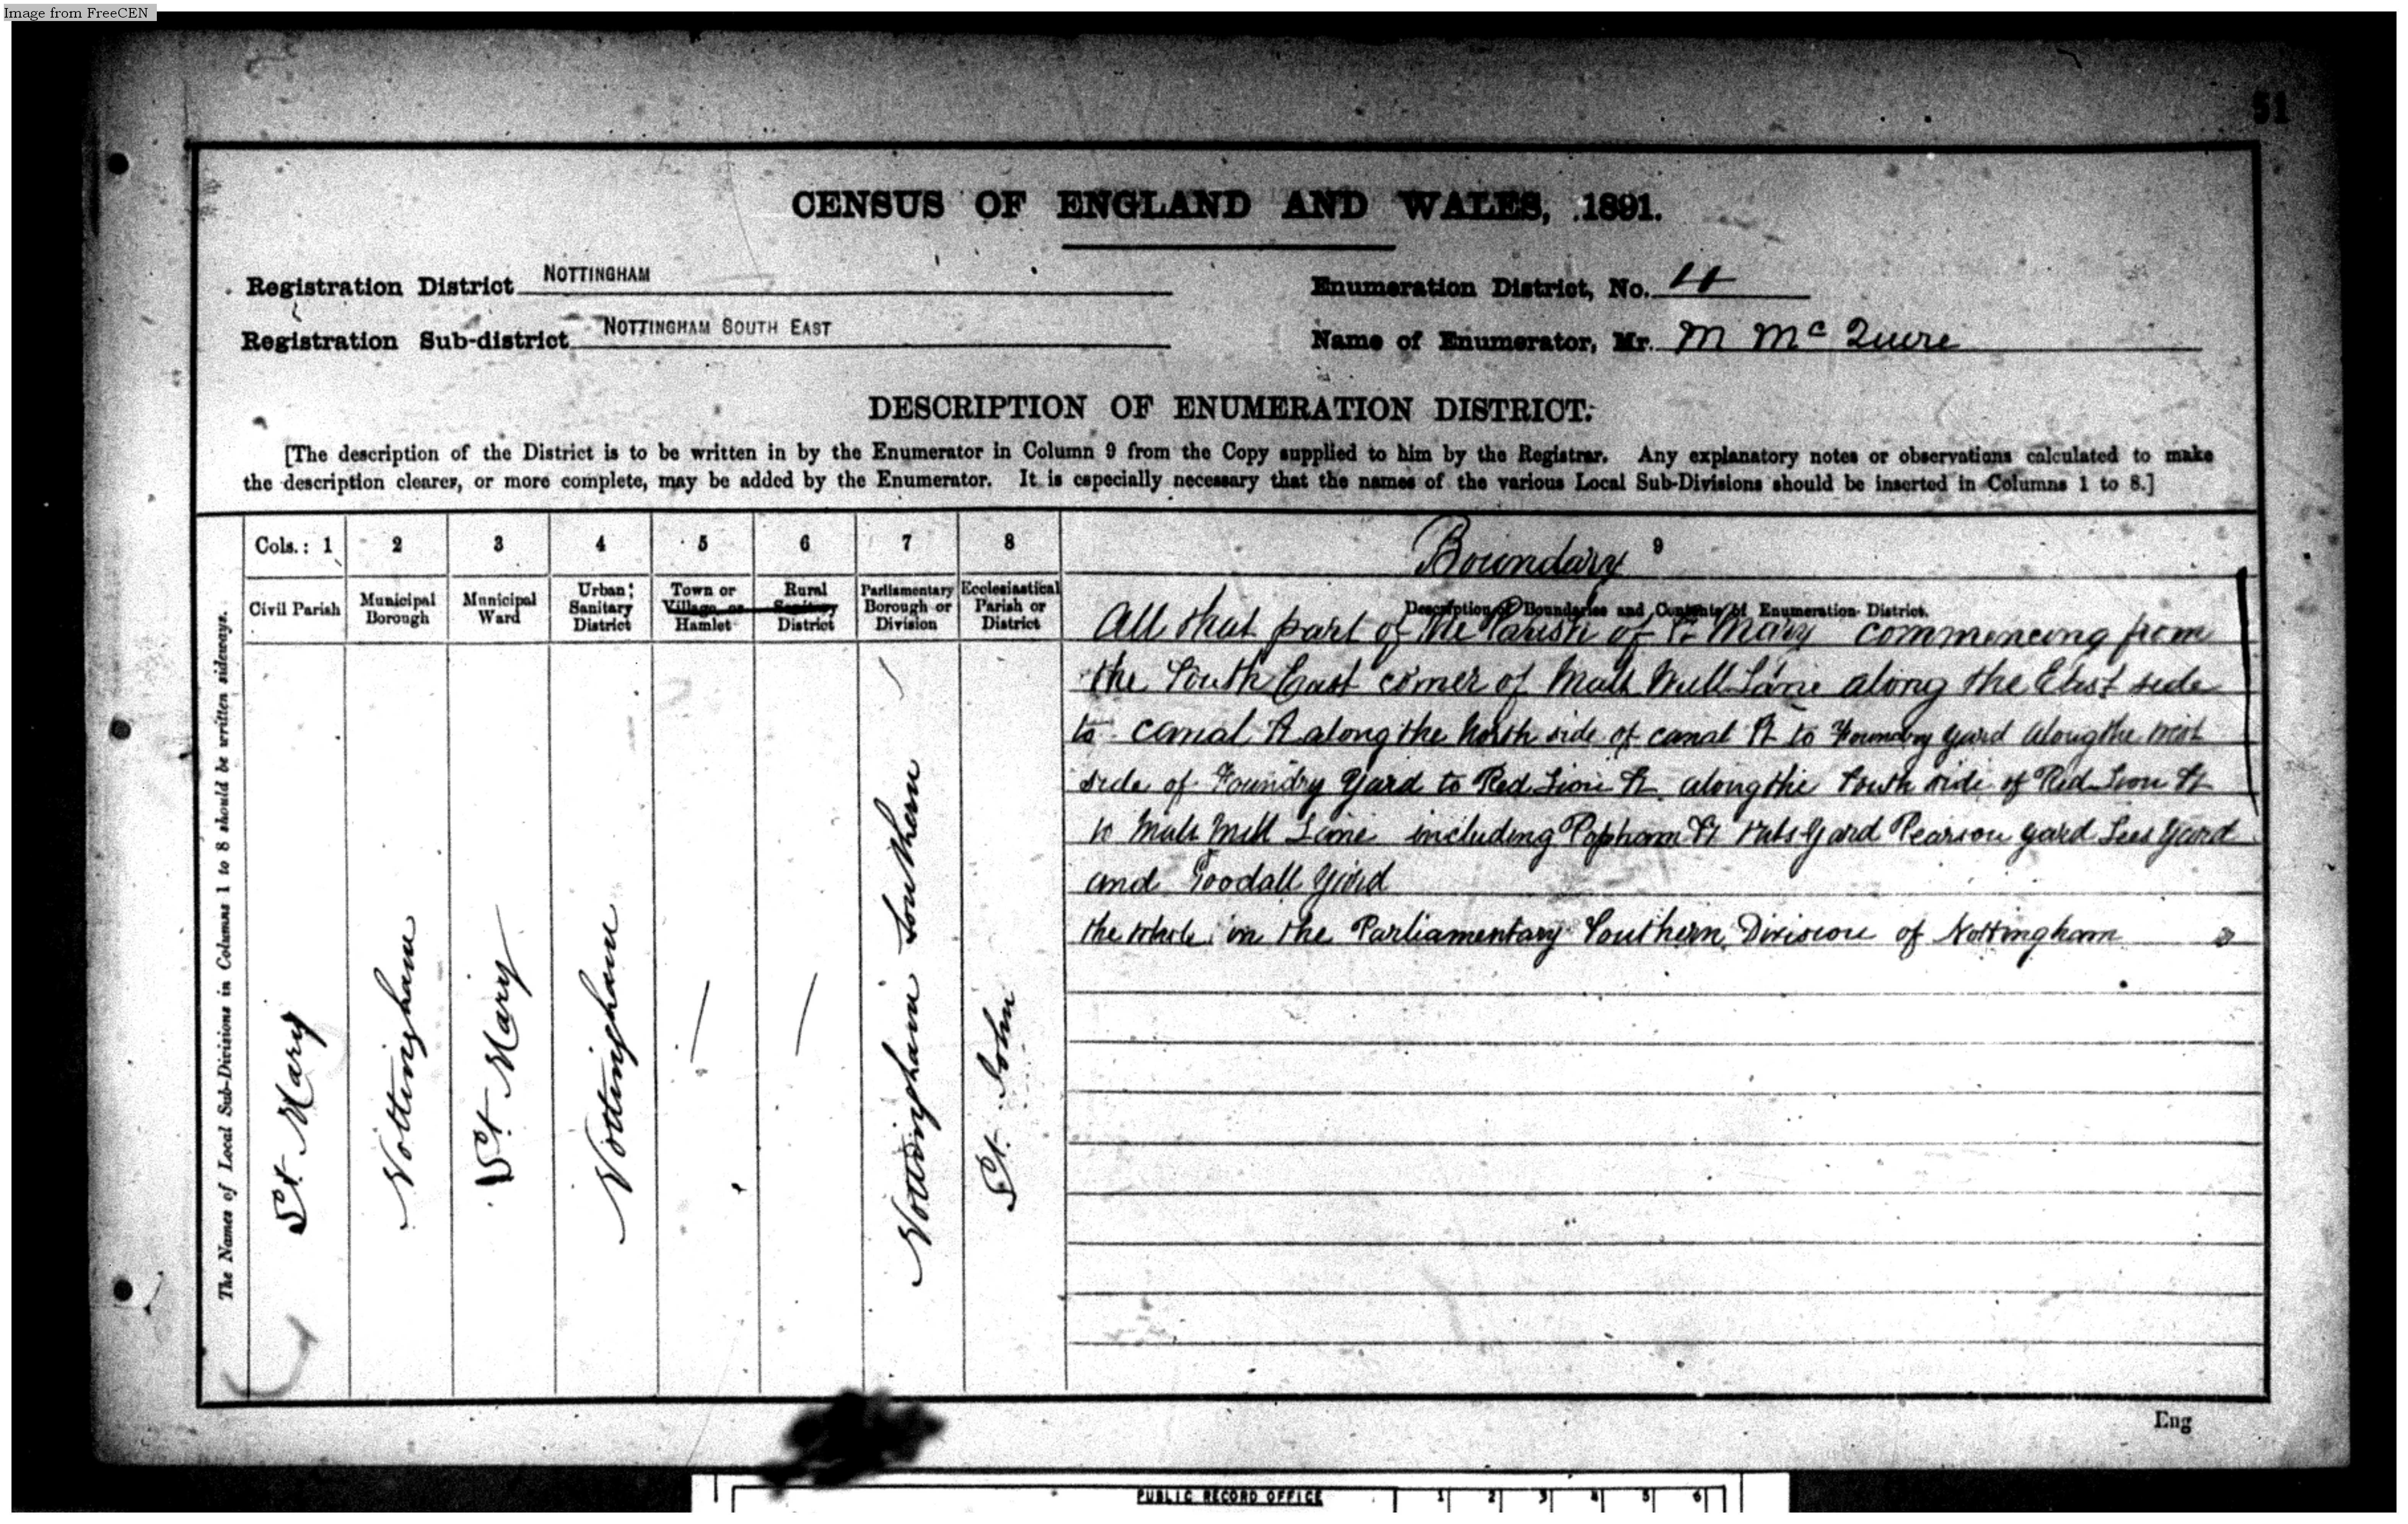 Image from FreeCEN
51
CENSUS OF ENGLAND AND WALES, 1891.
Registration District NOTTINGHAM
Enumeration District, No. 4
Registration Sub-district NOTTINGHAM SOUTH EAST
Name of Enumerator, Mr. M Mc
DESCRIPTION OF ENUMERATION DISTRICT.
[The description of the District is to be written in by the Enumerator in Column 9 from the Copy supplied to him by the Registrar. Any explanatory notes or observations calculated to make
the description clearer, or more complete, may be added by the Enumerator. It is especially necessary that the names of the various Local Sub-Divisions should be inserted in Columns 1 to 8.]
The Names of Local Sub-Divisions in Columns 1 to 8 should be written sideways.
Cols.: 1 2 3 4 5 6 7 8 9
Boundary
Civil Parish
Municipal Borough
Municipal Ward
Urban Sanitary District
Town or Village or Hamlet
Rural Sanitary District
Parliamentary Borough or Division
Ecclesiastical Parish or District
Description of Boundaries and Contents of Enumeration District.
St. Mary
Nottingham
St. Mary
Nottingham
Nottingham Southern
St. John
All that part of the Parish of St Mary commencing from
the South East corner of Malt Mill Lane along the East side
to canal St along the North side of canal St to Foundry yard along the west
side of Foundry Yard to Red Lion St along the South side of Red Lion St
to Malt Mill Lane including Popham St Yard Pearson yard Lees yard
and Goodall yard
the whole in the Parliamentary Southern Division of Nottingham
Eng
PUBLIC RECORD OFFICE 1 2 3 4 5 6